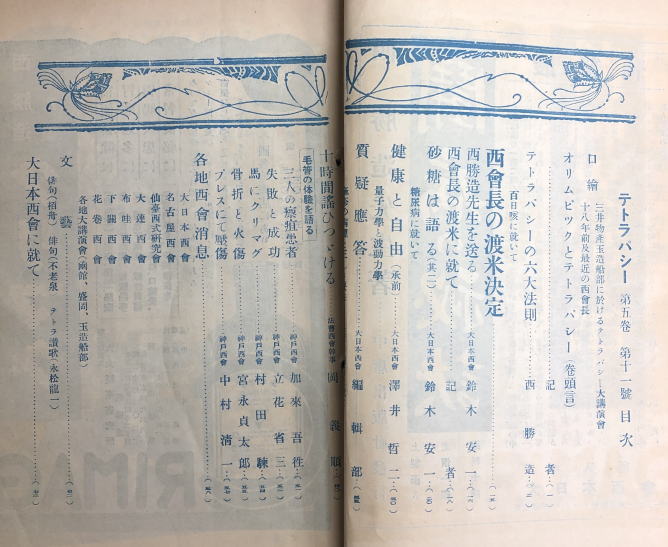 テトラパシー 第五巻 第十一號 目次
口繪
三井物産玉造船部に於けるテトラパシー大講演會
十八年前及最近の西會長
オリムピックとテトラパシー(巻頭言)……記者…(一)
テトラパシーの六大法則……西勝造…(二)
百日咳に就いて
西會長の渡米決定
西勝造先生を送る……大日本西會 鈴木安一
西會長の渡米に就て……記者
砂糖は語る(其二)……大日本西會 鈴木安一
糖尿病に就いて
健康と自由(承前)……大日本西會 澤井哲二
量子力學と波動力學
質疑應答……大日本西會 編輯部
十時間謠ひつゞける……法曹西會幹事 岡義順
毛管の體驗を語る
三人の瘭疽患者……神戸西會 加來吾徃
失敗と成功……神戸西會 立花省三
馬にクリマグ……神戸西會 村田駿
骨折と火傷……神戸西會 宮永貞太郎
プレスにて壓傷……神戸西會 中村清一
各地西會消息
大日本西會
名古屋西會
仙臺西式研究會
大連西會
布哇西會
下關西會
花巻西會
各地大講演會(函館、盛岡、玉造船部)
文藝
俳句(栢舟) 俳句(不老泉) テトラ讃歌(永松龍一)
大日本西會に就て